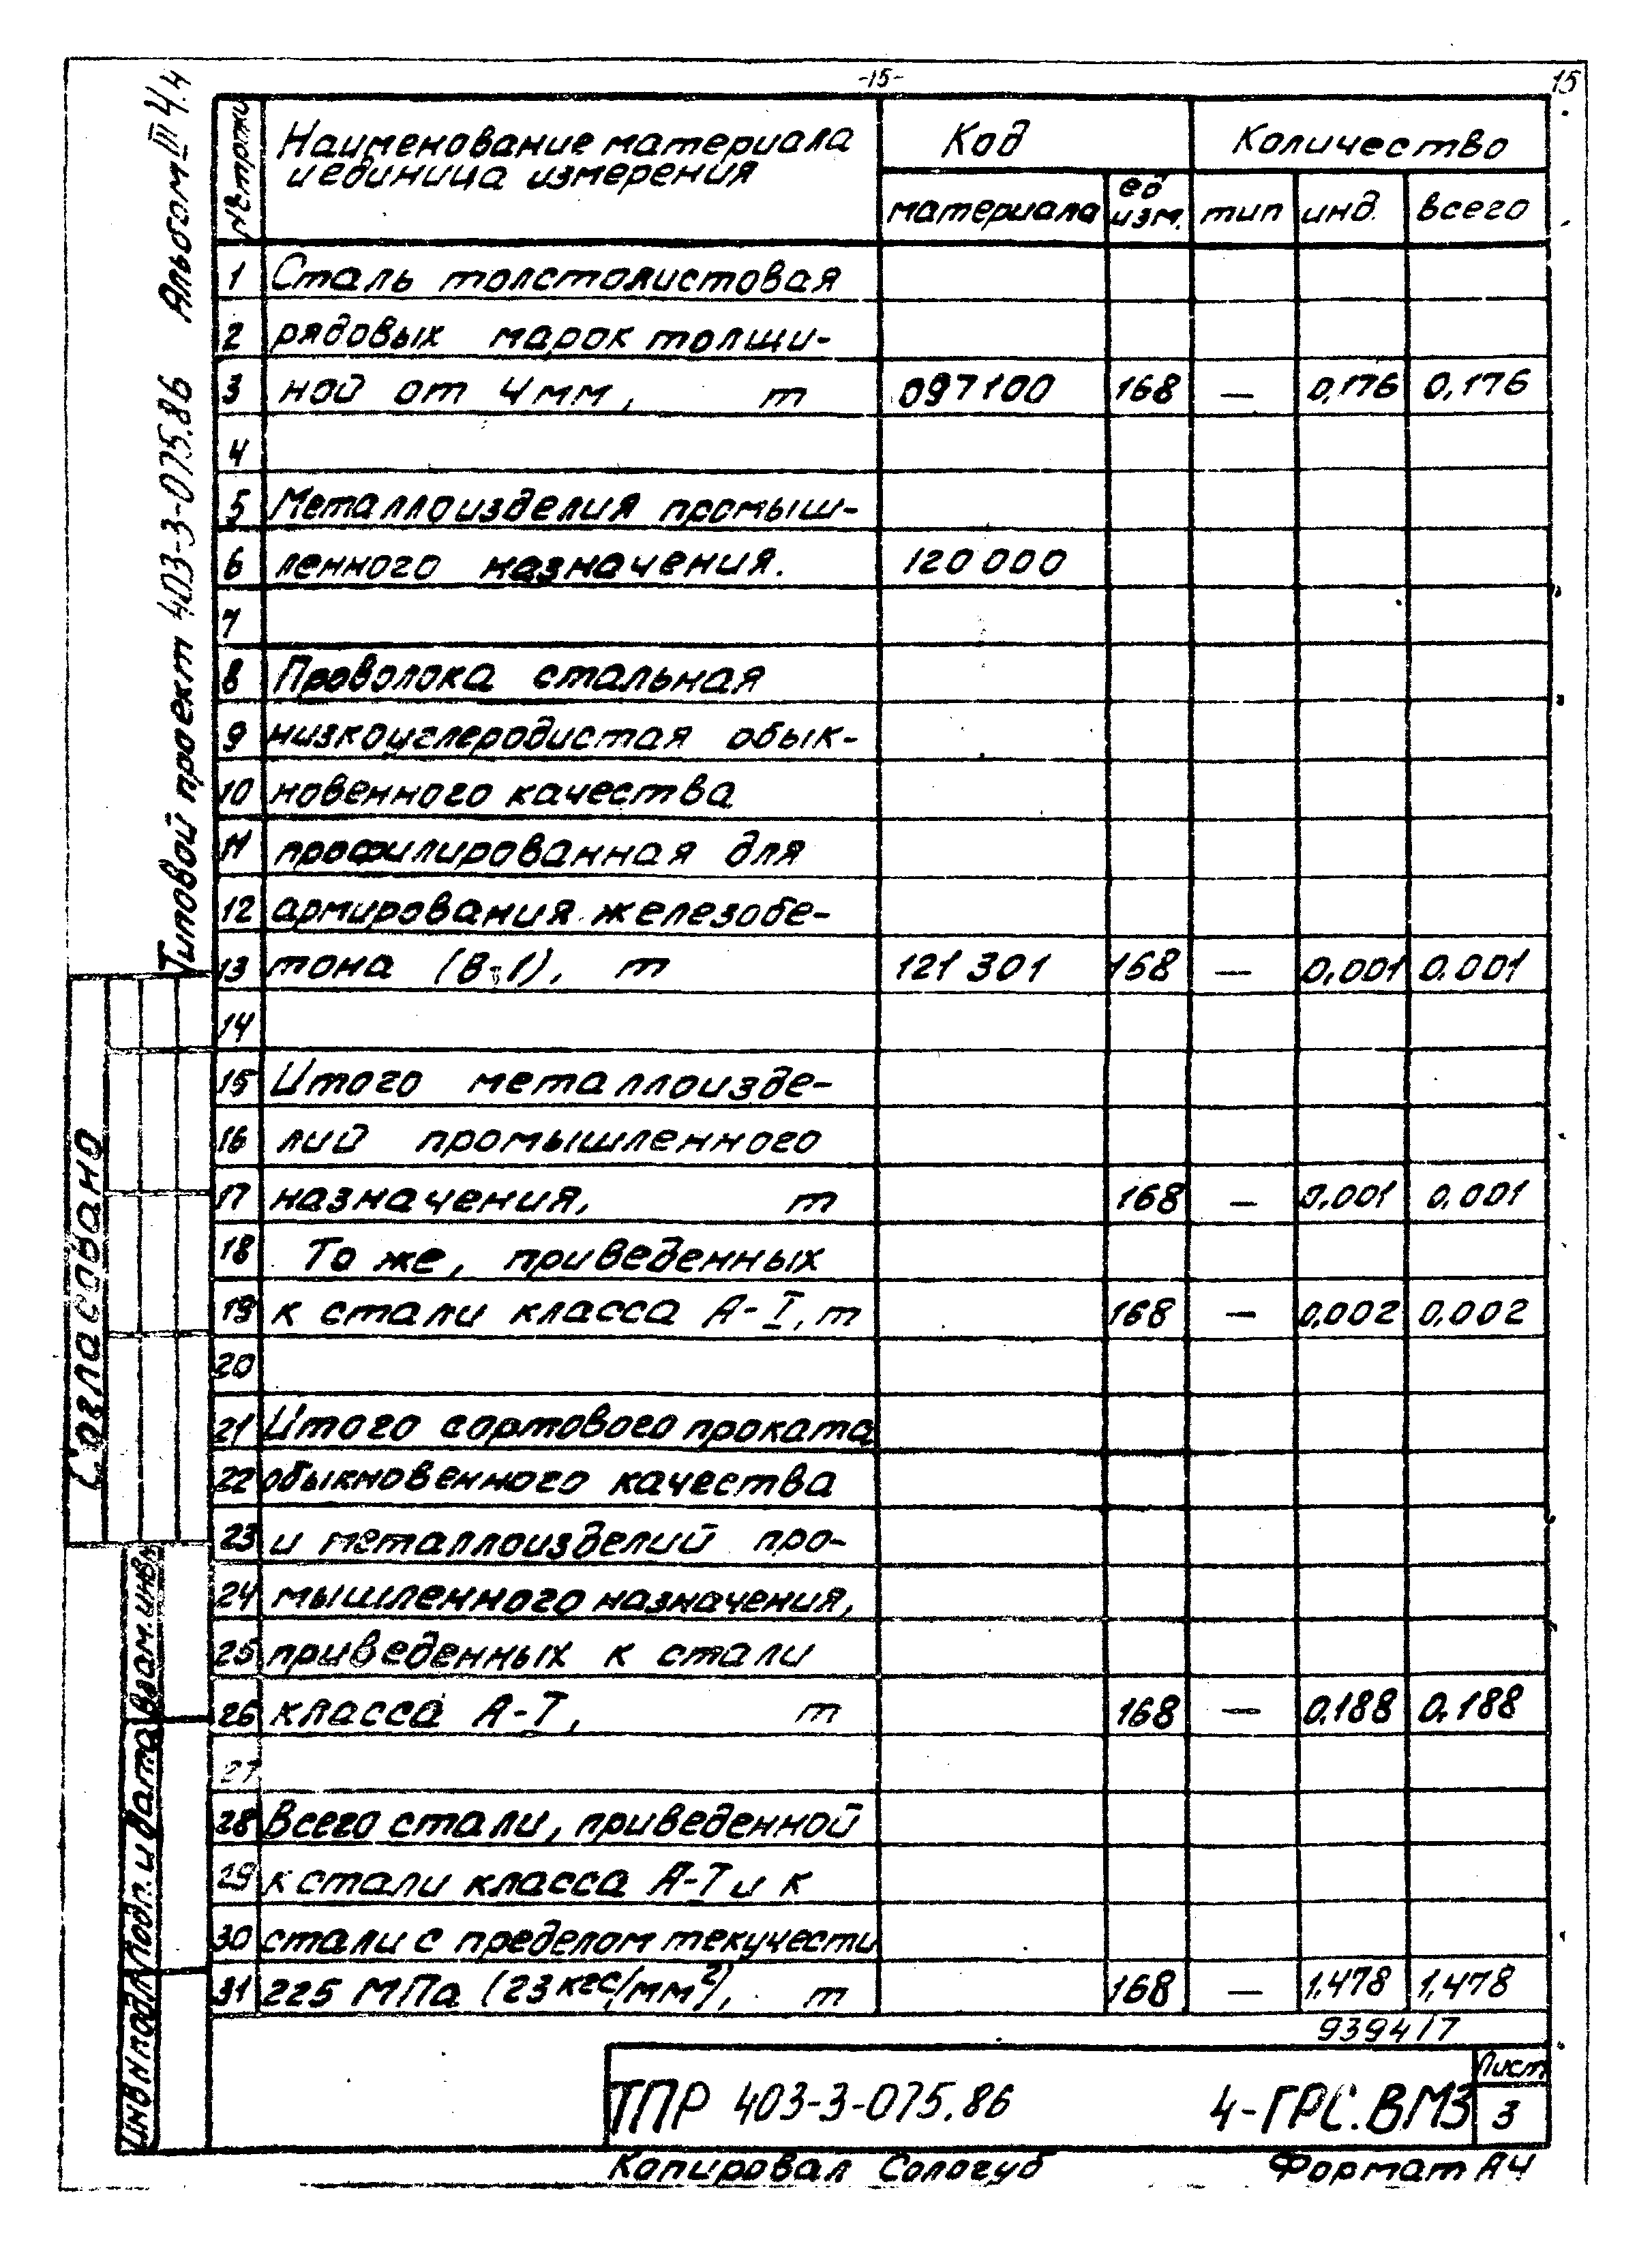 -15-
15
Типовой проект 403-3-075.86 Альбом III ч.4
№ строки
Наименование материала
и единица измерения
Код
Количество
материала
ед
изм.
тип
инд.
всего
1 Сталь толстолистовая
2 рядовых марок толщи-
3 ной от 4мм, т 097100 168 — 0,176 0,176
4
5 Металлоизделия промыш-
6 ленного назначения. 120000
7
8 Проволока стальная
9 низкоуглеродистая обык-
10 новенного качества
11 профилированная для
12 армирования железобе-
13 тона (В-1), т 121301 168 — 0,001 0.001
14
15 Итого металлоизде-
16 лий промышленного
17 назначения, т 168 — 0,001 0,001
18 То же, приведенных
19 к стали класса А-I, т 168 — 0,002 0,002
20
21 Итого сортового проката
22 обыкновенного качества
23 и металлоизделий про-
24 мышленного назначения,
25 приведенных к стали
26 класса А-I, т 168 — 0,188 0,188
27
28 Всего стали, приведенной
29 к стали класса А-I и к
30 стали с пределом текучести
31 225 МПа (23 кгс/мм²), т 168 — 1,478 1,478
Согласовано
Взам. инв.№
Подп. и дата
Инв № подл
9394/7
ТПР 403-3-075.86
4-ГРС.ВМ3
Лист
3
Копировал Сологуб
Формат А4